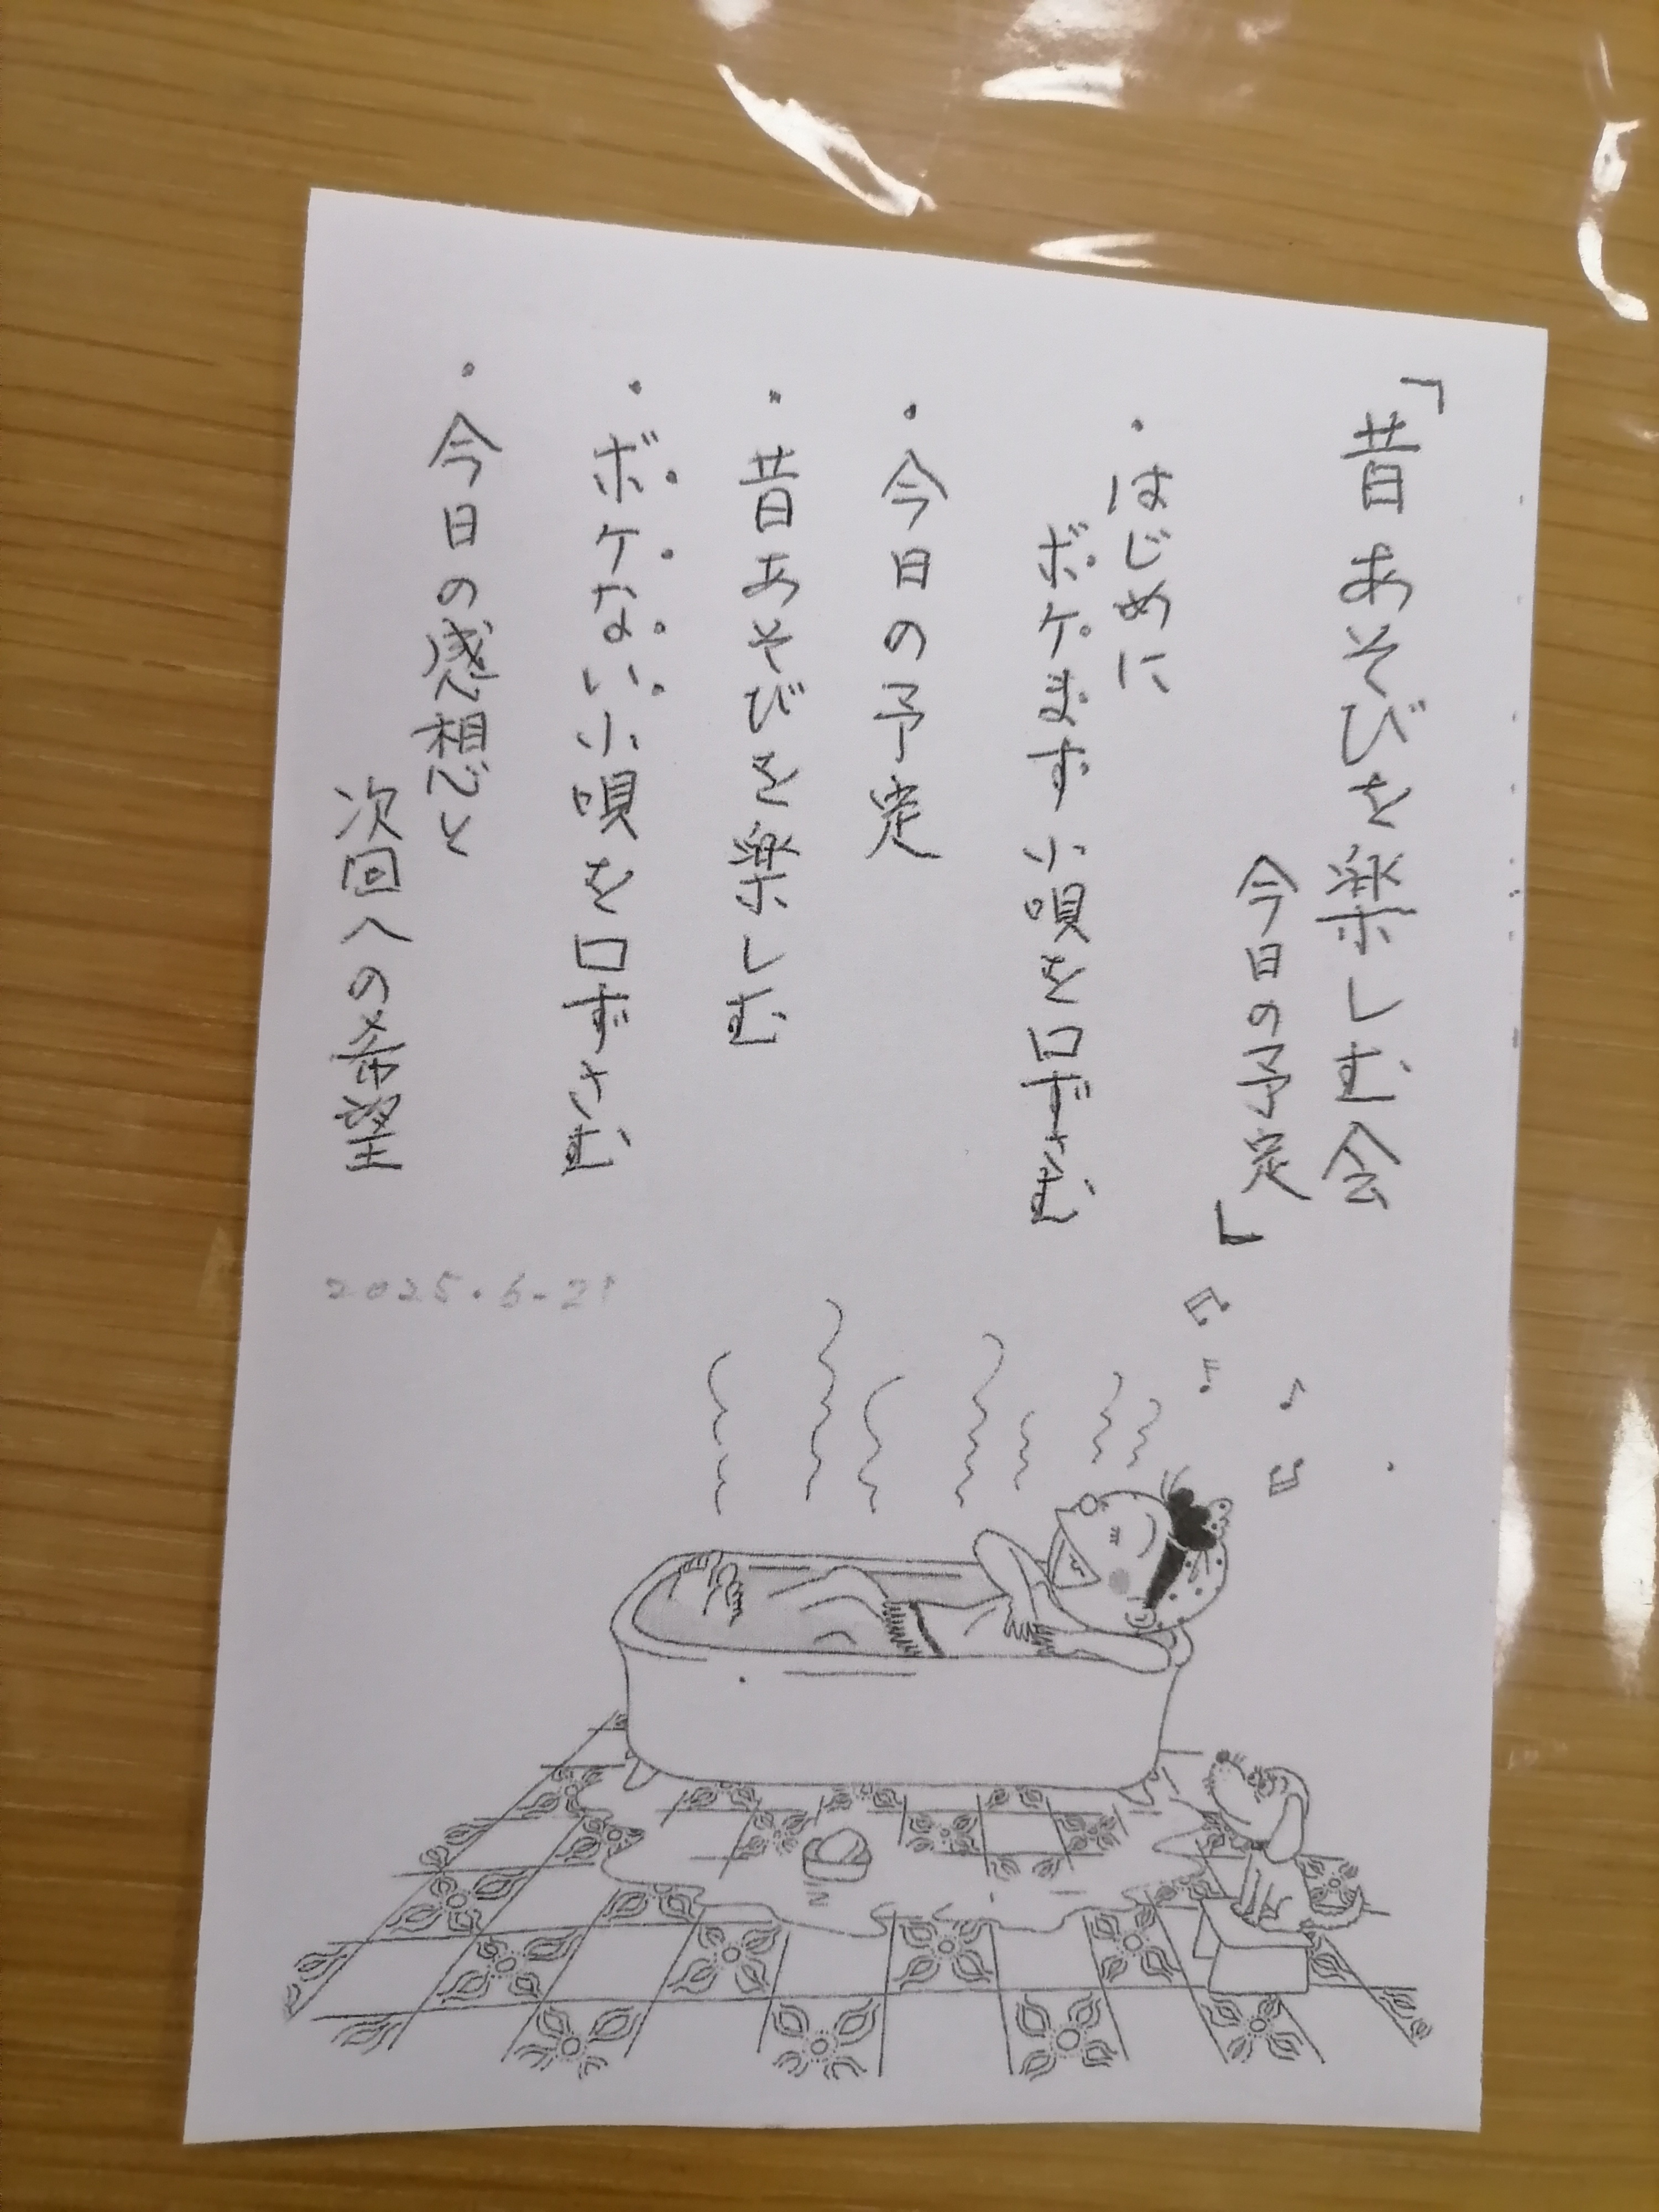 「昔あそびを楽しむ会
今日の予定」
・はじめに
ボケます小唄を口ずさむ
・今日の予定
・昔あそびを楽しむ
・ボケない小唄を口ずさむ
・今日の感想と
次回への希望
2025.6-21